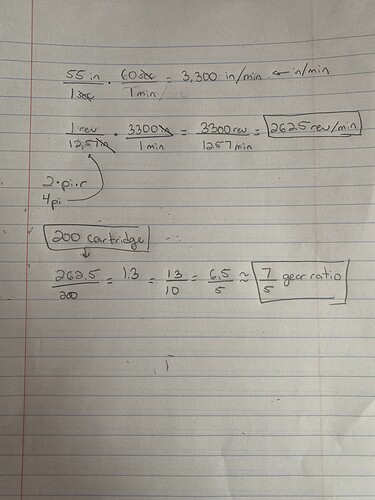 55 in / 1 sec · 60 sec / 1 min = 3,300 in/min ← in/min
1 rev / 12.57in · 3300in / 1 min = 3300 rev / 12.57 min = 262.5 rev/min
2·pi·r
4pi
200 cartridge
262.5 / 200 = 1.3 = 13 / 10 = 6.5 / 5 ≈ 7 / 5 gear ratio